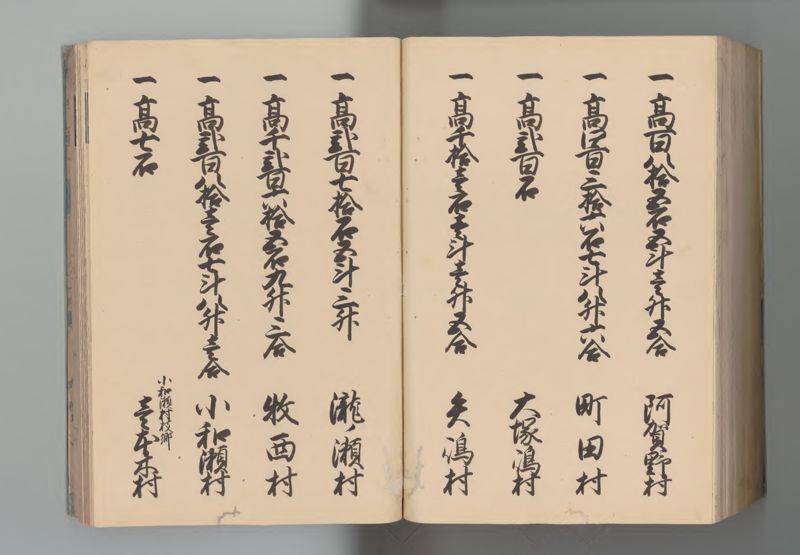 一高百八拾五石五斗壱升五合 阿賀野村
一高四百三拾六石七斗八升六合 町田村
一高弐百石 大塚嶋村
一高千拾壱石壱斗壱升五合 矢嶋村
一高弐百七拾石五斗三升 瀧ノ瀬村
一高千弐百六拾五石九升三合 牧西村
一高弐百八拾壱石七斗八升壱合 小和瀬村
一高七石 小和瀬村枝郷 壱本木村